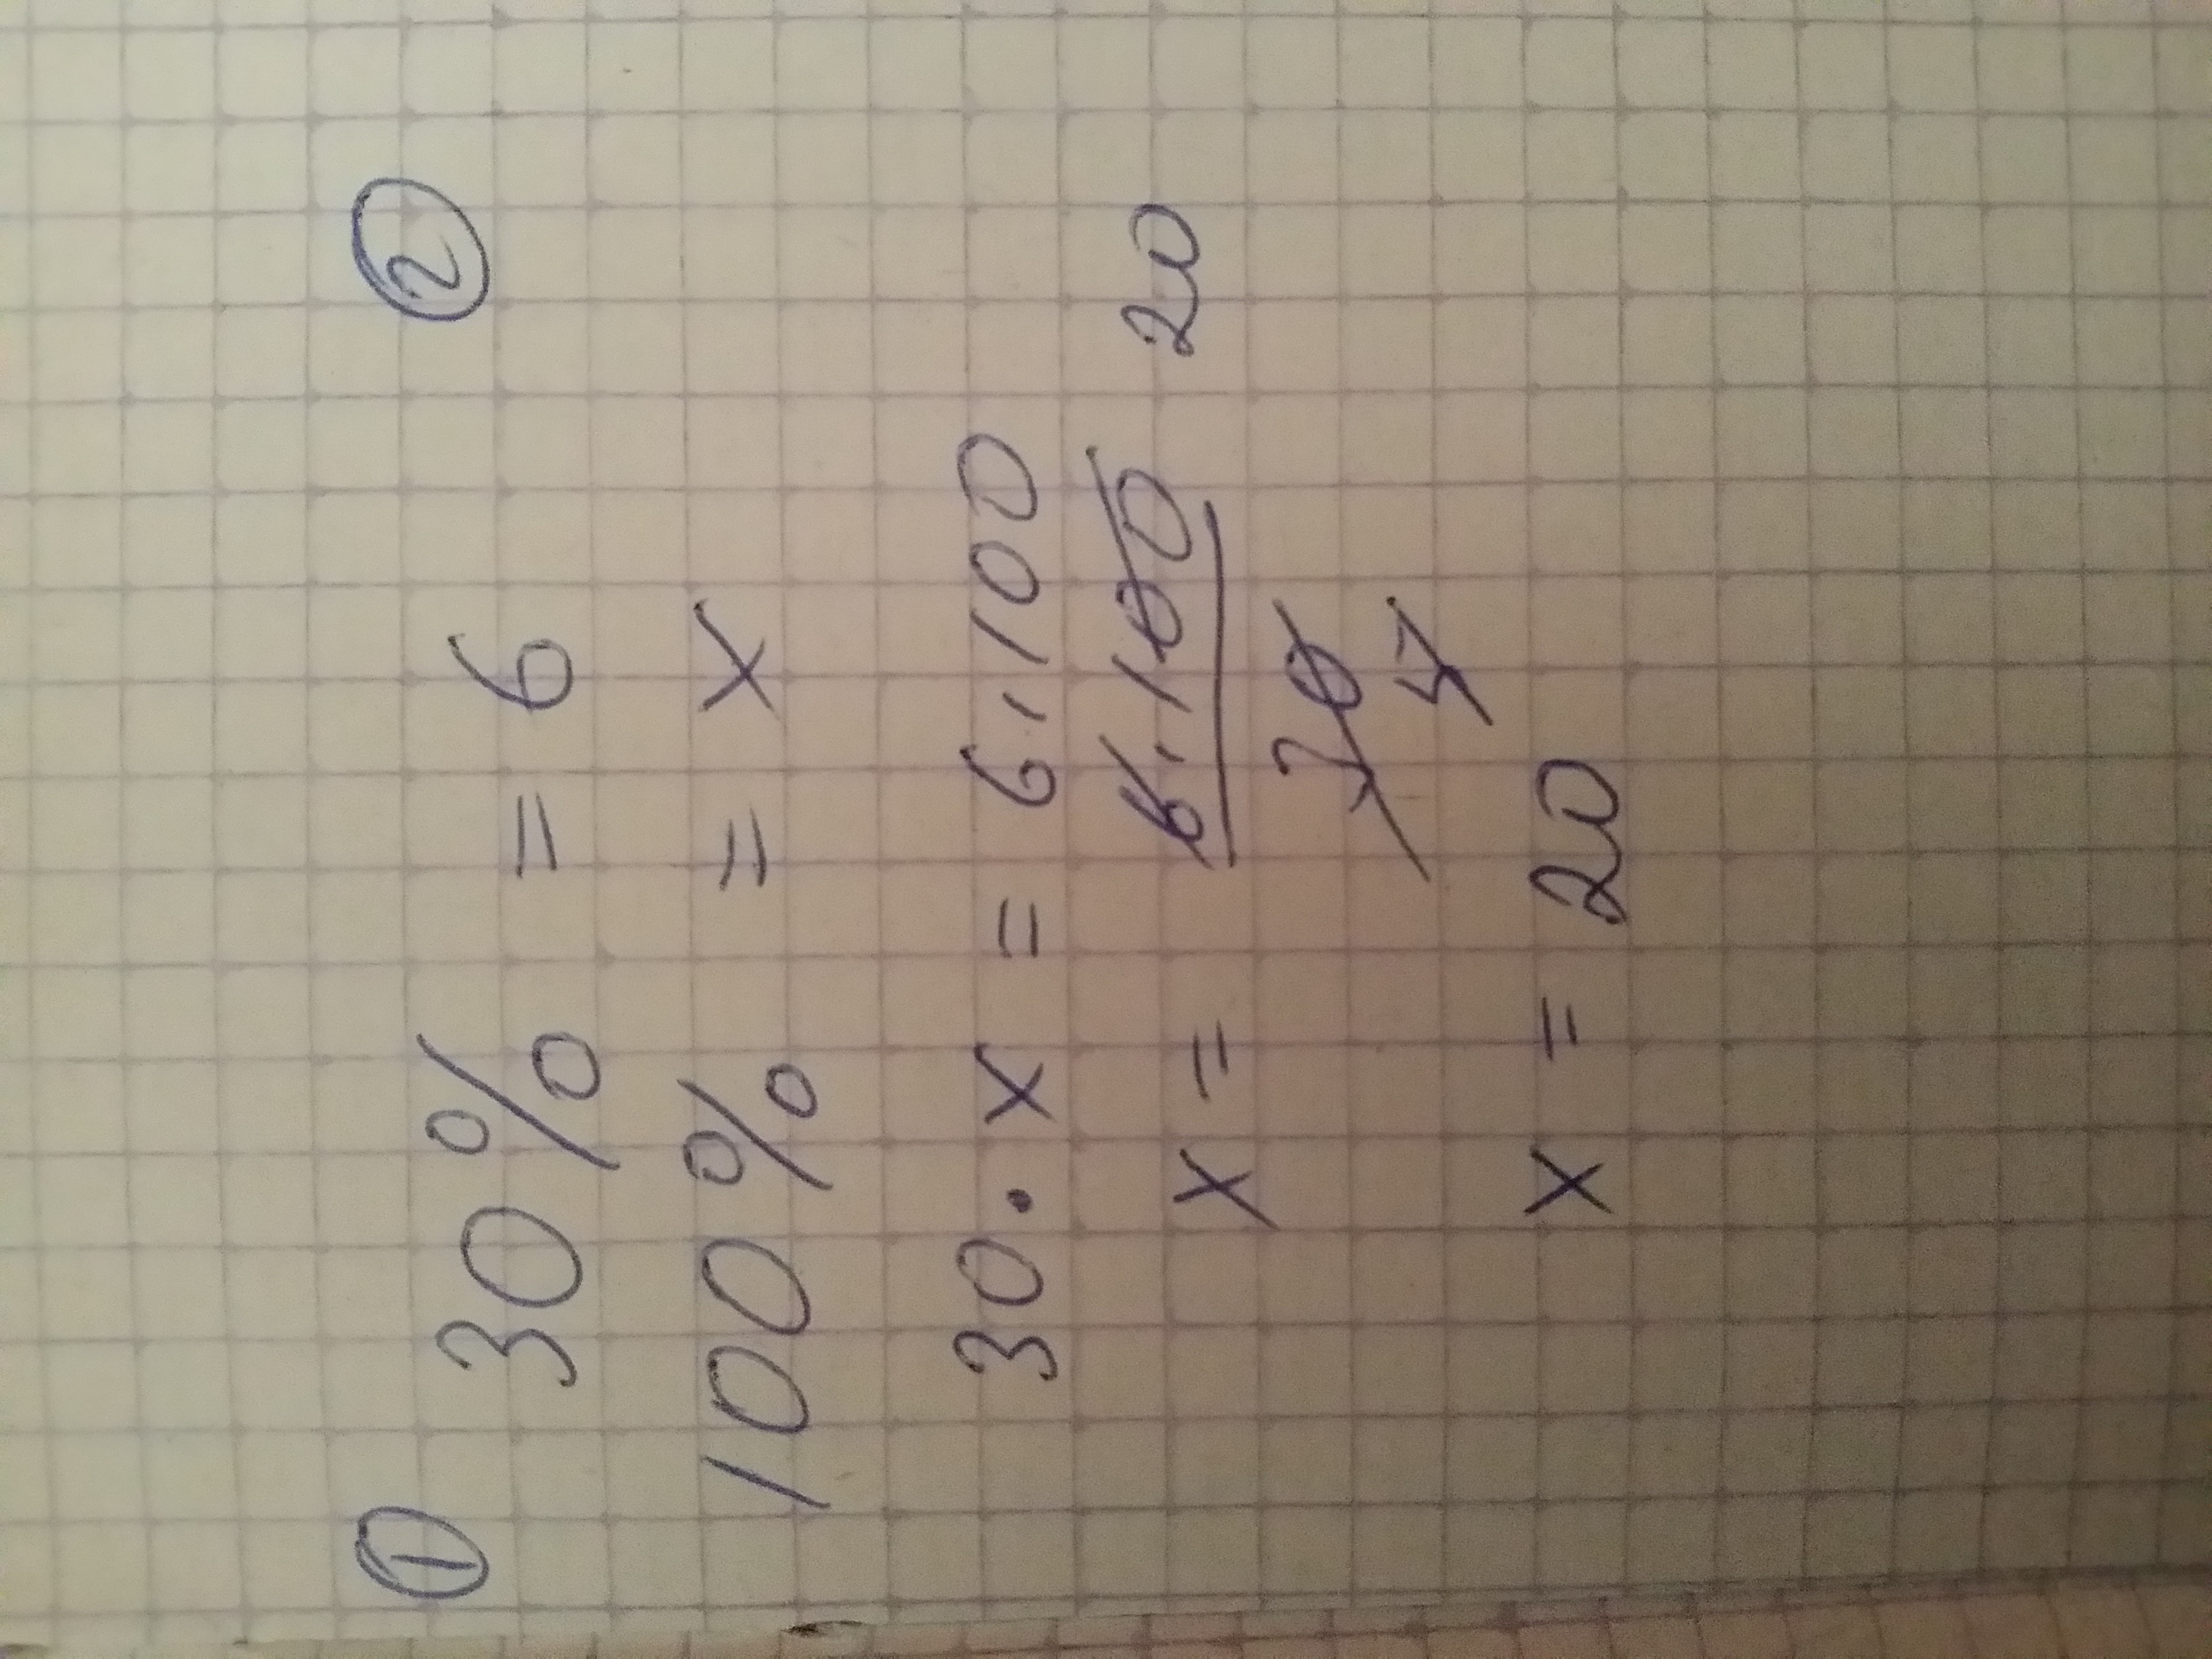 ① ②
30% = 6
100% = x
30 · x = 6 · 100
x = 6 · 100 20
30
x = 20